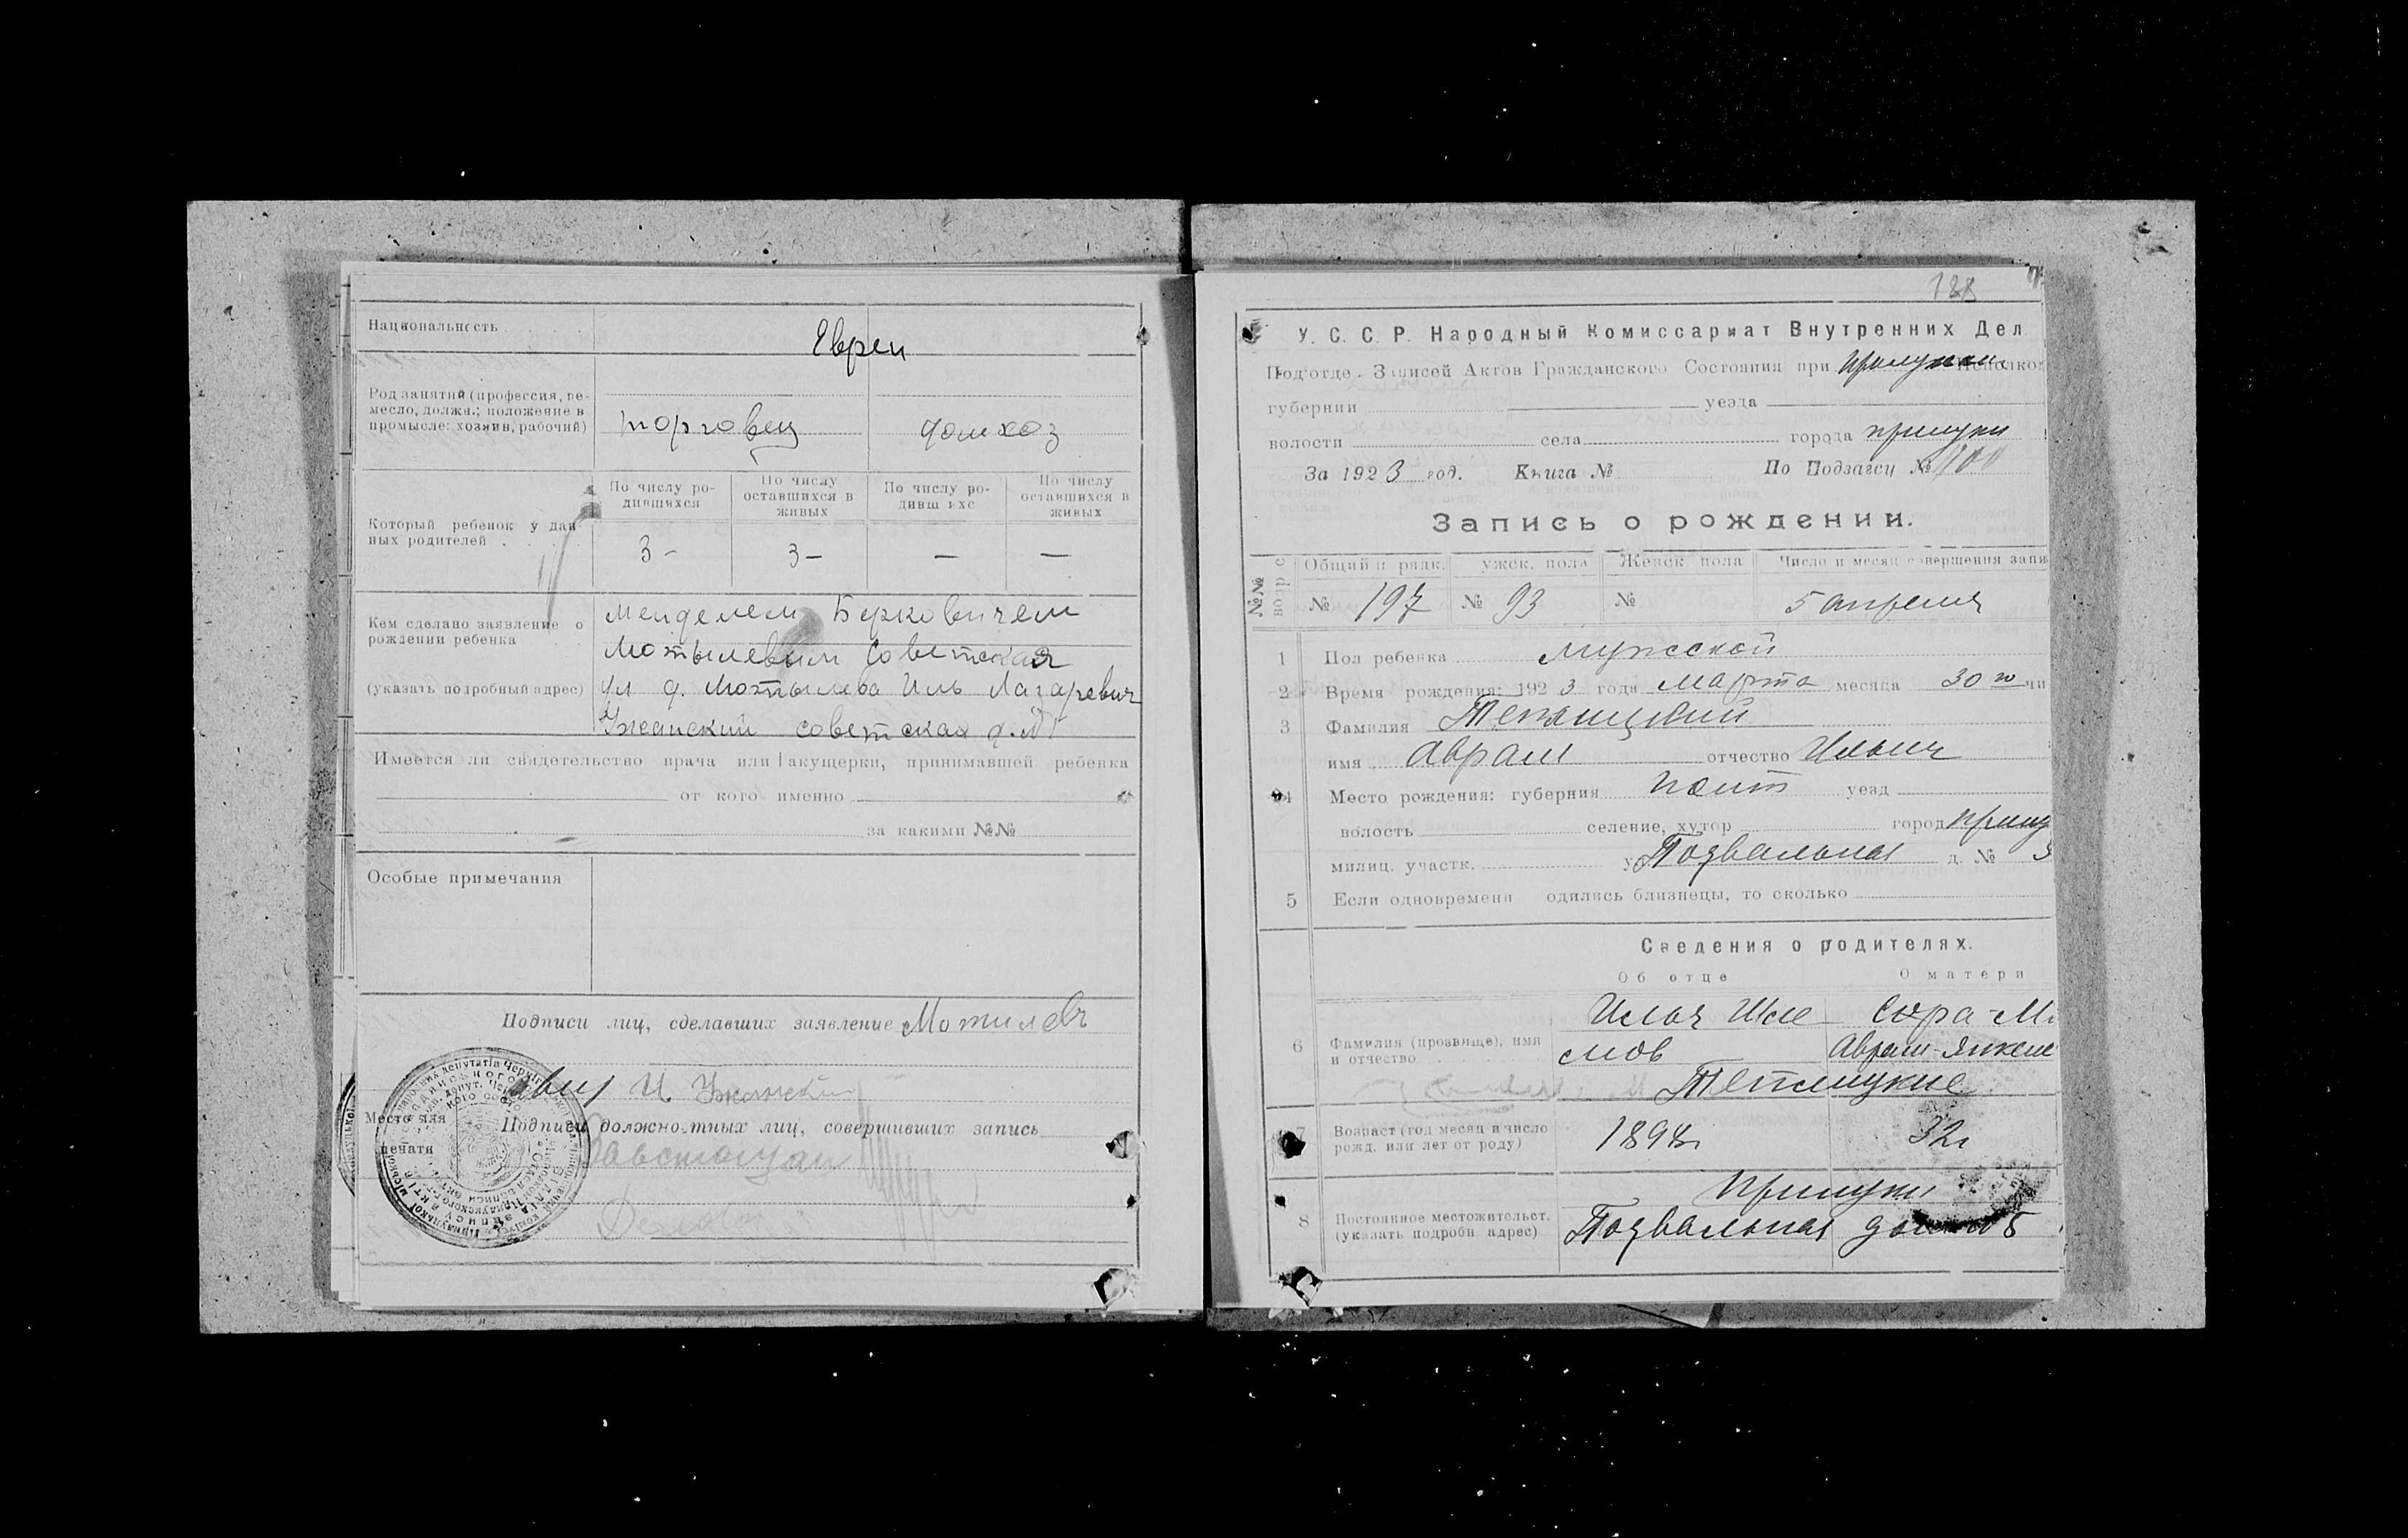 Национальность
Евреи
Род занятий (профессия, ре-
месло, должн.; положение в
промысле: хозяин, рабочий)
торговец
домхоз
По числу ро-
дившихся
По числу
оставшихся в
живых
По числу ро-
дивш ихс
По числу
оставшихся в
живых
Который ребенок у дан
ных родителей . . . .
3 - 3 - — —
Кем сделано заявление о
рождении ребенка
(указать подробный адрес)
Менделем Берковичем
Мотылевым Советская
ул д. Мотылева Иль Лазаревич
Ужанский советская д. №
Имеется ли свидетельство врача или акушерки, принимавшей ребенка
от кого именно
за какими №№
Особые примечания
Подписи лиц, сделавших заявление Мотилев
И Ужанский
Место для
печати
Подписи должностных лиц, совершивших запись
188
У. С. С. Р. Народный Комиссариат Внутренних Дел
Подотде. Записей Актов Гражданского Состояния при
губернии уезда
волости села города Прилуки
За 1923 год. Книга № По Подзагсу № 100
Запись о рождении.
Общий п рядк. ужск. пола Женск пола Число и месяц совершения запи
№ 197 № 93 № 5 апреля
1 Пол ребенка мужской
2 Время рождения: 1923 года марта месяца 30 го чи
3 Фамилия Теплицкий
имя Аврам отчество Ильич
4 Место рождения: губерния Полт уезд
волость селение, хутор город Прилу
милиц. участк. у Подвальная д. №
5 Если одновремени одились близнецы, то сколько
Сведения о родителях.
Об отце О матери
6 Фамилия (прозвище), имя
и отчество
Илья Шле
мов
Сура-М
Аврам-Янкеле
Теплицкие
7 Возраст (год месяц и число
рожд. или лет от роду)
1898г 32г
8 Постоянное местожительст.
(указать подробн адрес)
Прилуки
Подвальная дом №5